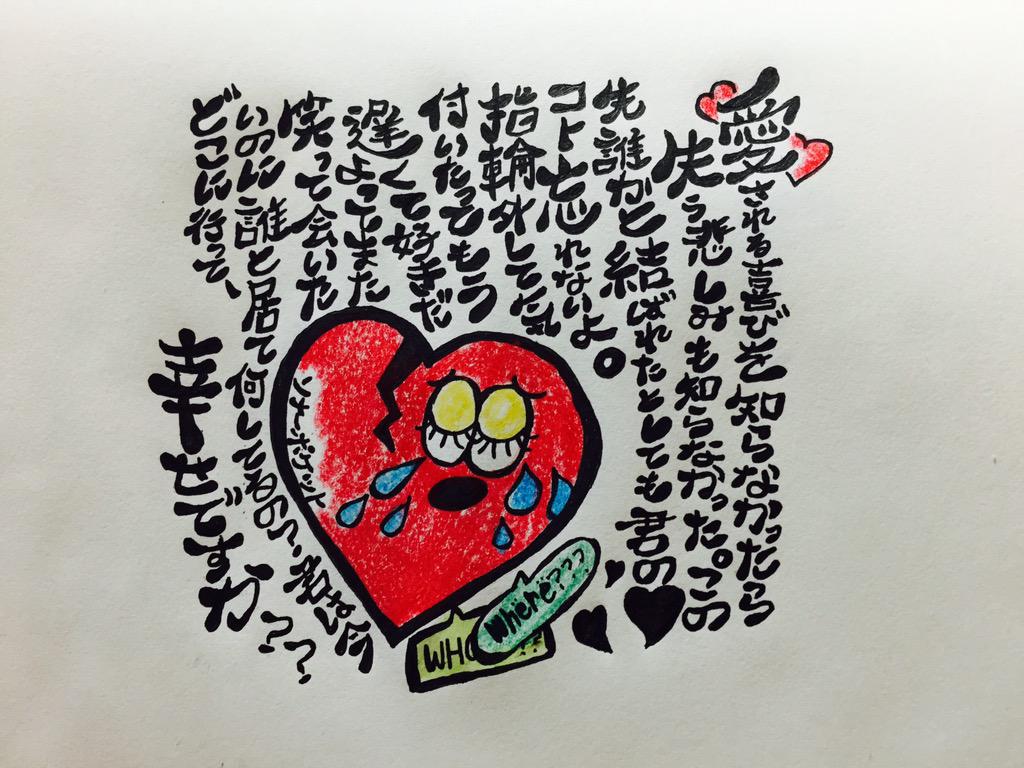 愛される喜びを知らなかったら
失う悲しみも知らなかった。この
先誰かと結ばれたとしても君の
コト忘れないよ。
指輪外して気
付いたってもう
遅くて好きだ
よってまた
笑って会いた
いのに誰と居て何してるの?君は今
どこに行って、
幸せですか??
ソナーポケット
Where???
WHO